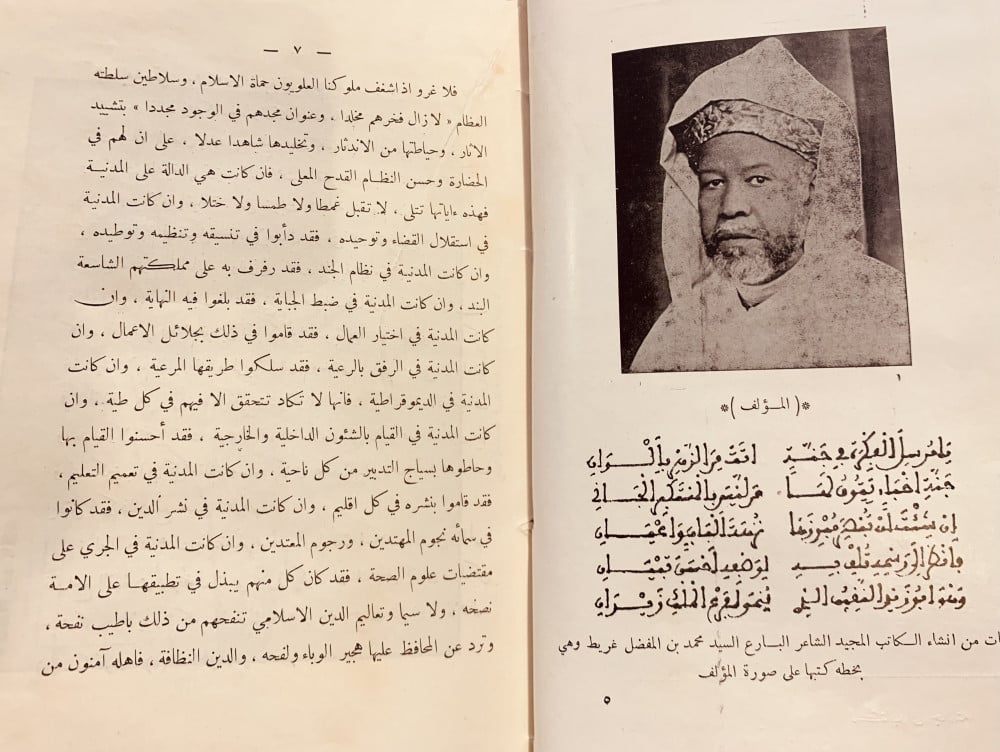 *( المؤلف )*
يا مرسل الفكرة في جنة أتت من الزهر بألوان
جنة أخبار
إن شئت أن تبصر
فانظر إلى رسمه
وهو أبو زيد النقيب الذي ينمو لفرع الملك زيدان
ات من انشاء الكاتب المجيد الشاعر البارع السيد محمد بن المفضل غريط وهي
بخطه كتبها على صورة المؤلف
٥
— ٧ —
فلا غرو اذ اشغف ملوكنا العلويون حماة الاسلام ، وسلاطين سلطته
العظام « لا زال فخرهم مخلدا ، وعنوان مجدهم في الوجود مجددا » بتشييد
الاثار ، وحياطتها من الاندثار ، وتخليدها شاهدا عدلا ، على ان لهم في
الحضارة وحسن النظام القدح المعلى ، فان كانت هي الدالة على المدنية
فهذه ءاياتها تتلى ، لا تقبل غمطا ولا طمسا ولا ختلا ، وان كانت المدنية
في استقلال القضاء وتوحيده ، فقد دأبوا في تنسيقه وتنظيمه وتوطيده ،
وان كانت المدنية في نظام الجند ، فقد رفرف به على مملكتهم الشاسعة
البند ، وان كانت المدنية في ضبط الجباية ، فقد بلغوا فيه النهاية ، وان
كانت المدنية في اختيار العمال ، فقد قاموا في ذلك بجلائل الاعمال ، وان
كانت المدنية في الرفق بالرعية ، فقد سلكوا طريقها المرعية ، وان كانت
المدنية في الديموقراطية ، فانها لا تكاد تتحقق الا فيهم في كل طية ، وان
كانت المدنية في القيام بالشئون الداخلية والخارجية ، فقد أحسنوا القيام بها
وحاطوها بسياج التدبير من كل ناحية ، وان كانت المدنية في تعميم التعليم ،
فقد قاموا بنشره في كل اقليم ، وان كانت المدنية في نشر الدين ، فقد كانوا
في سمائه نجوم المهتدين ، ورجوم المعتدين ، وان كانت المدنية في الجري على
مقتضيات علوم الصحة ، فقد كان كل منهم يبذل في تطبيقها على الامة
نصحه ، ولا سيما وتعاليم الدين الاسلامي تنفحهم من ذلك باطيب نفحة ،
وترد عن المحافظ عليها هجير الوباء ولفحه ، والدين النظافة ، فاهله آمنون من